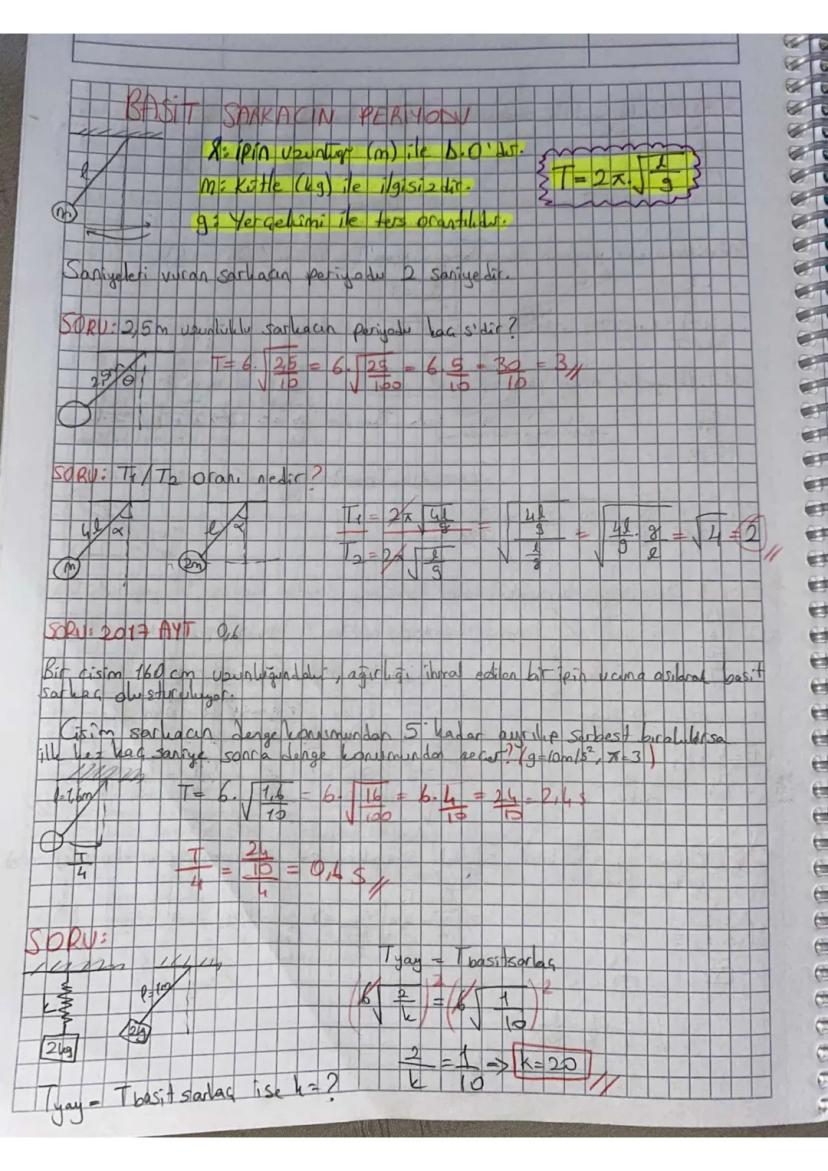 BASİT SARKACIN PERİYODU
l: ipin uzunluğu (m) ile D.O'dır.
m: Kütle (kg) ile ilgisizdir.
g: Yerçekimi ile ters orantılıdır.
T = 2π.√(l/g)
l
m
Saniyeleri vuran sarkacın periyodu 2 saniyedir.
SORU: 2,5m uzunluklu sarkacın periyodu kaç s'dir?
2,5 θ
T = 6.√(2,5/10) = 6.√(25/100) = 6.5/10 = 30/10 = 3
SORU: T1/T2 oranı nedir?
4l α m
l α 2m
T1/T2 = 2π√(4l/g) / 2π√(l/g) = √((4l/g)/(l/g)) = √(4l/g . g/l) = √4 = 2
SORU: 2017 AYT 0,6
Bir cisim 160 cm uzunluğundaki, ağırlığı ihmal edilen bir ipin ucuna asılarak basit
sarkaç oluşturuluyor.
Cisim sarkacın denge konumundan 5° kadar ayrılıp serbest bırakılırsa
ilk kez kaç saniye sonra denge konumundan geçer? (g=10m/s², π=3)
l=1,6m
T = 6.√(1,6/10) = 6.√(16/100) = 6.4/10 = 24/10 = 2,4 s
T/4
T/4 = (24/10)/4 = 0,6 s
SORU:
k 2kg
l=1m 2kg
Tyay = Tbasitsarkaç
(6√(2/k))² = (6√(1/10))²
2/k = 1/10 → k=20
Tyay = Tbasit sarkaç ise k=?